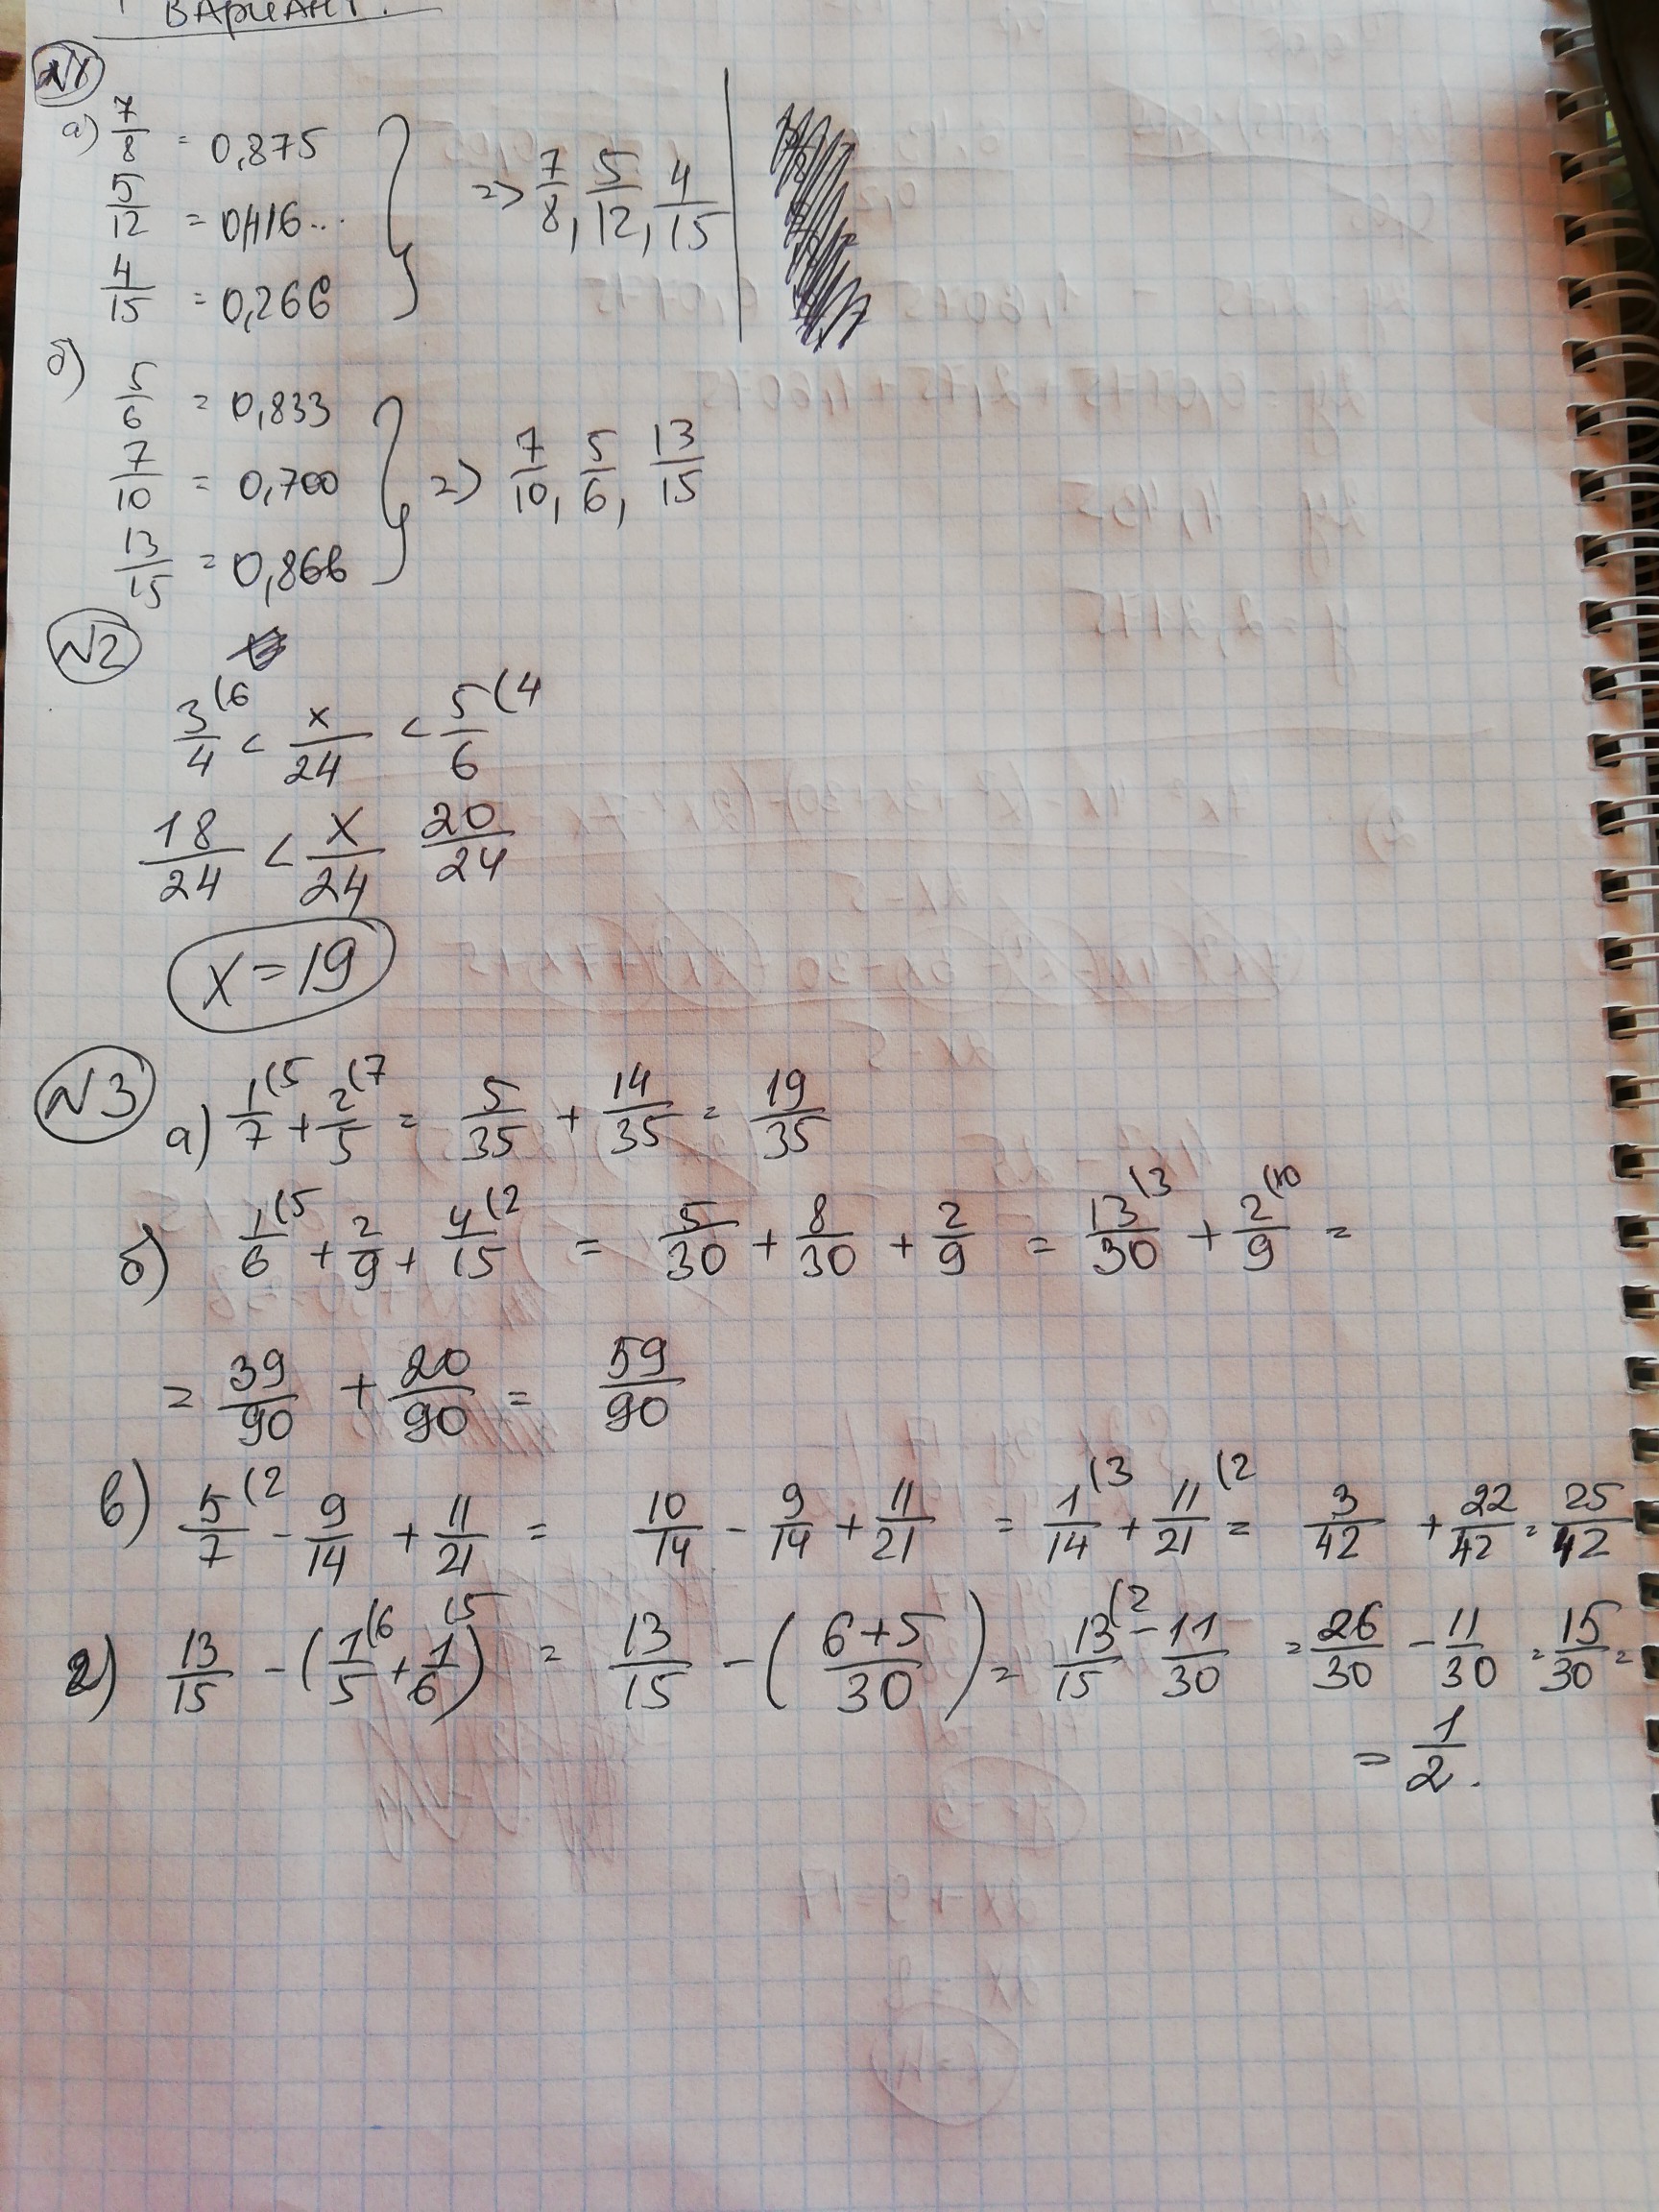 Вариант.
N1
а) 7/8 = 0,875
5/12 = 0,416..
4/15 = 0,266
=> 7/8, 5/12, 4/15
б)
5/6 = 0,833
7/10 = 0,700
13/15 = 0,866
=> 7/10, 5/6, 13/15
N2
3/4 (6 < x/24 < 5/6 (4
18/24 < x/24 20/24
x=19
N3
а) 1/7 (5 + 2/5 (7 = 5/35 + 14/35 = 19/35
б) 1/6 (5 + 2/9 + 4/15 (2 = 5/30 + 8/30 + 2/9 = 13/30 (3 + 2/9 (10 =
= 39/90 + 20/90 = 59/90
в) 5/7 (2 - 9/14 + 11/21 = 10/14 - 9/14 + 11/21 = 1/14 (3 + 11/21 (2 = 3/42 + 22/42 = 25/42
г) 13/15 - (1/5 (6 + 1/6 (5) = 13/15 - (6+5/30) = 13/15 (2 - 11/30 = 26/30 - 11/30 = 15/30 =
= 1/2.